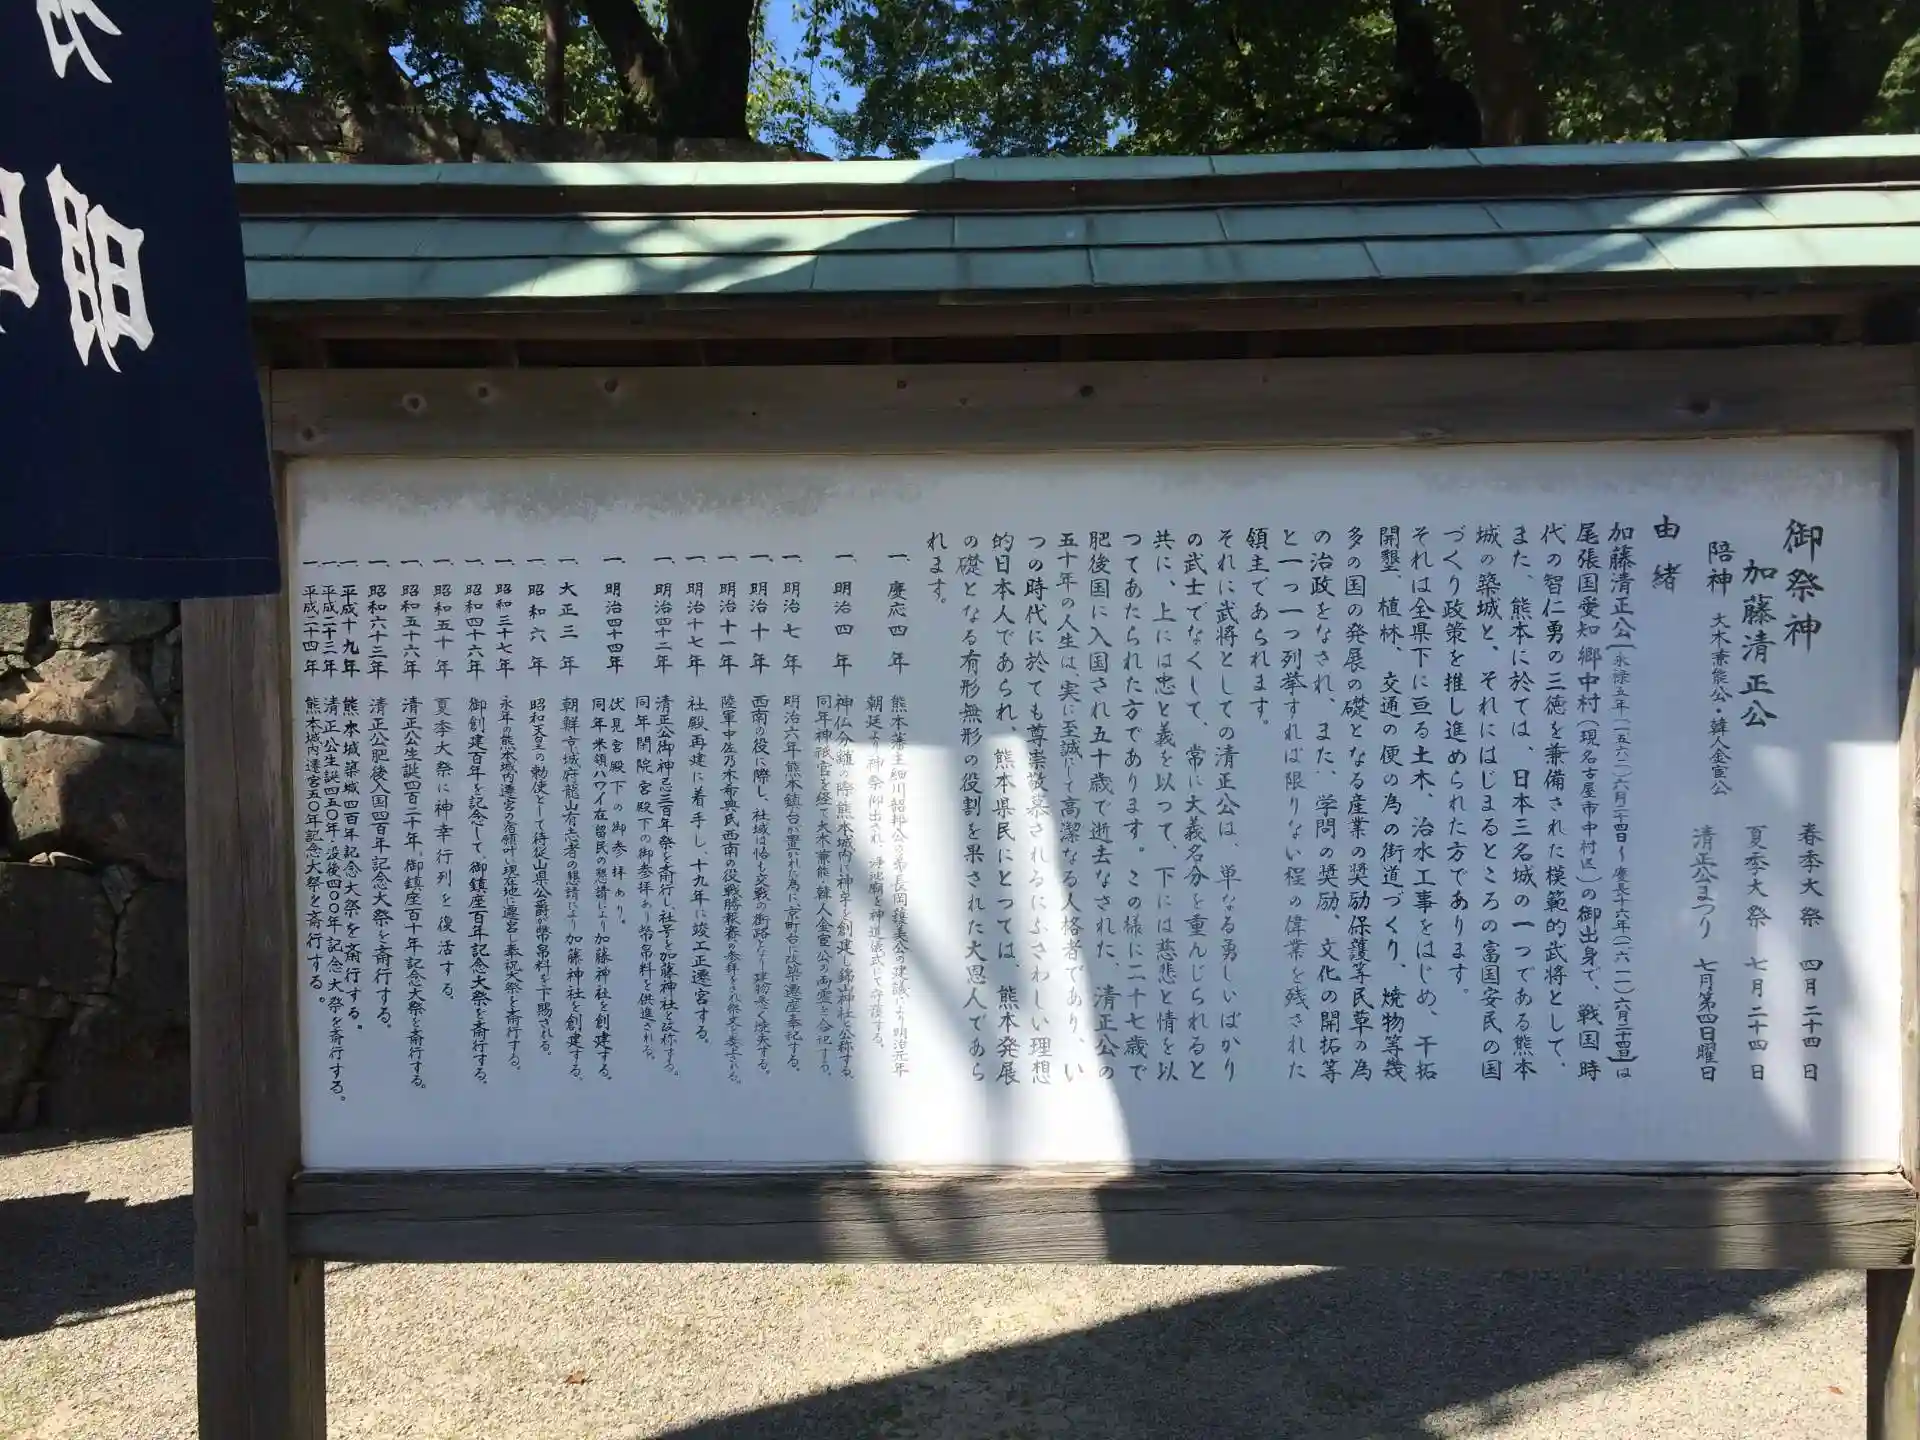 御祭神
加藤清正公
陪神 大木兼能公・韓人金宦公
春季大祭 四月二十四日
夏季大祭 七月二十四日
清正公まつり 七月第四日曜日
由緒
加藤清正公(永禄五年(一五六二)六月二十四日～慶長十六年(一六一一)六月二十四日)は
尾張国愛知郷中村(現名古屋市中村区)の御出身で、戦国時
代の智仁勇の三徳を兼備された模範的武将として、
また、熊本に於ては、日本三名城の一つである熊本
城の築城と、それにはじまるところの富国安民の国
づくり政策を推し進められた方であります。
それは全県下に亘る土木、治水工事をはじめ、干拓
開墾、植林、交通の便の為の街道づくり、焼物等幾
多の国の発展の礎となる産業の奨励保護等民草の為
の治政をなされ、また、学問の奨励、文化の開拓等
と一つ一つ列挙すれば限りない程の偉業を残された
領主であられます。
それに武将としての清正公は、単なる勇しいばかり
の武士でなくして、常に大義名分を重んじられると
共に、上には忠と義を以つて、下には慈悲と情を以
つてあたられた方であります。この様に二十七歳で
肥後国に入国され五十歳で逝去なされた、清正公の
五十年の人生は、実に至誠にして高潔なる人格者であり、い
つの時代に於ても尊崇敬慕されるにふさわしい理想
的日本人であられ、熊本県民にとつては、熊本発展
の礎となる有形無形の役割を果された大恩人であら
れます。
一、慶応四年 熊本藩主細川韶邦公の弟長岡護美公の建議により明治元年
朝廷より神祭仰出され、浄池廟を神道儀式にて守護する。
一、明治四年 神仏分離の際熊本城内に神宇を創建し錦山神社と公称する。
同年神祇官を経て大木兼能、韓人金宦公の両霊を合祀する。
一、明治七年 明治六年熊本鎮台が置かれた為に、京町台に改築遷座奉祀する。
一、明治十年 西南の役に際し、社域は恰も交戦の街路となり建物悉く焼失する。
一、明治十一年 陸軍中佐乃木希典氏西南の役戦勝報賽の参拝をされ祭文を奏上される。
一、明治十七年 社殿再建に着手し、十九年に竣工正遷宮する。
一、明治四十二年 清正公御神忌三百年祭を斎行し、社号を加藤神社と改称する。
同年閑院宮殿下の御参拝あり幣帛料を供進される。
伏見宮殿下の御参拝あり。
一、明治四十四年 同年米領ハワイ在留民の懇請により加藤神社を創建する。
一、大正三年 朝鮮京城府龍山有志者の懇請により加藤神社を創建する。
一、昭和六年 昭和天皇の勅使として侍従山県公爵が幣帛料を下賜される。
一、昭和三十七年 永年の熊本城内遷宮の宿願叶い現在地に遷宮し奉祝大祭を斎行する。
一、昭和四十六年 御創建百年を記念して、御鎮座百年記念大祭を斎行する。
一、昭和五十年 夏季大祭に神幸行列を復活する。
一、昭和五十六年 清正公生誕四百二十年、御鎮座百十年記念大祭を斎行する。
一、昭和六十三年 清正公肥後入国四百年記念大祭を斎行する。
一、平成十九年 熊本城築城四百年記念大祭を斎行する。
一、平成二十三年 清正公生誕四五〇年・没後四〇〇年記念大祭を斎行する。
一、平成二十四年 熊本城内遷宮五〇年記念大祭を斎行する。